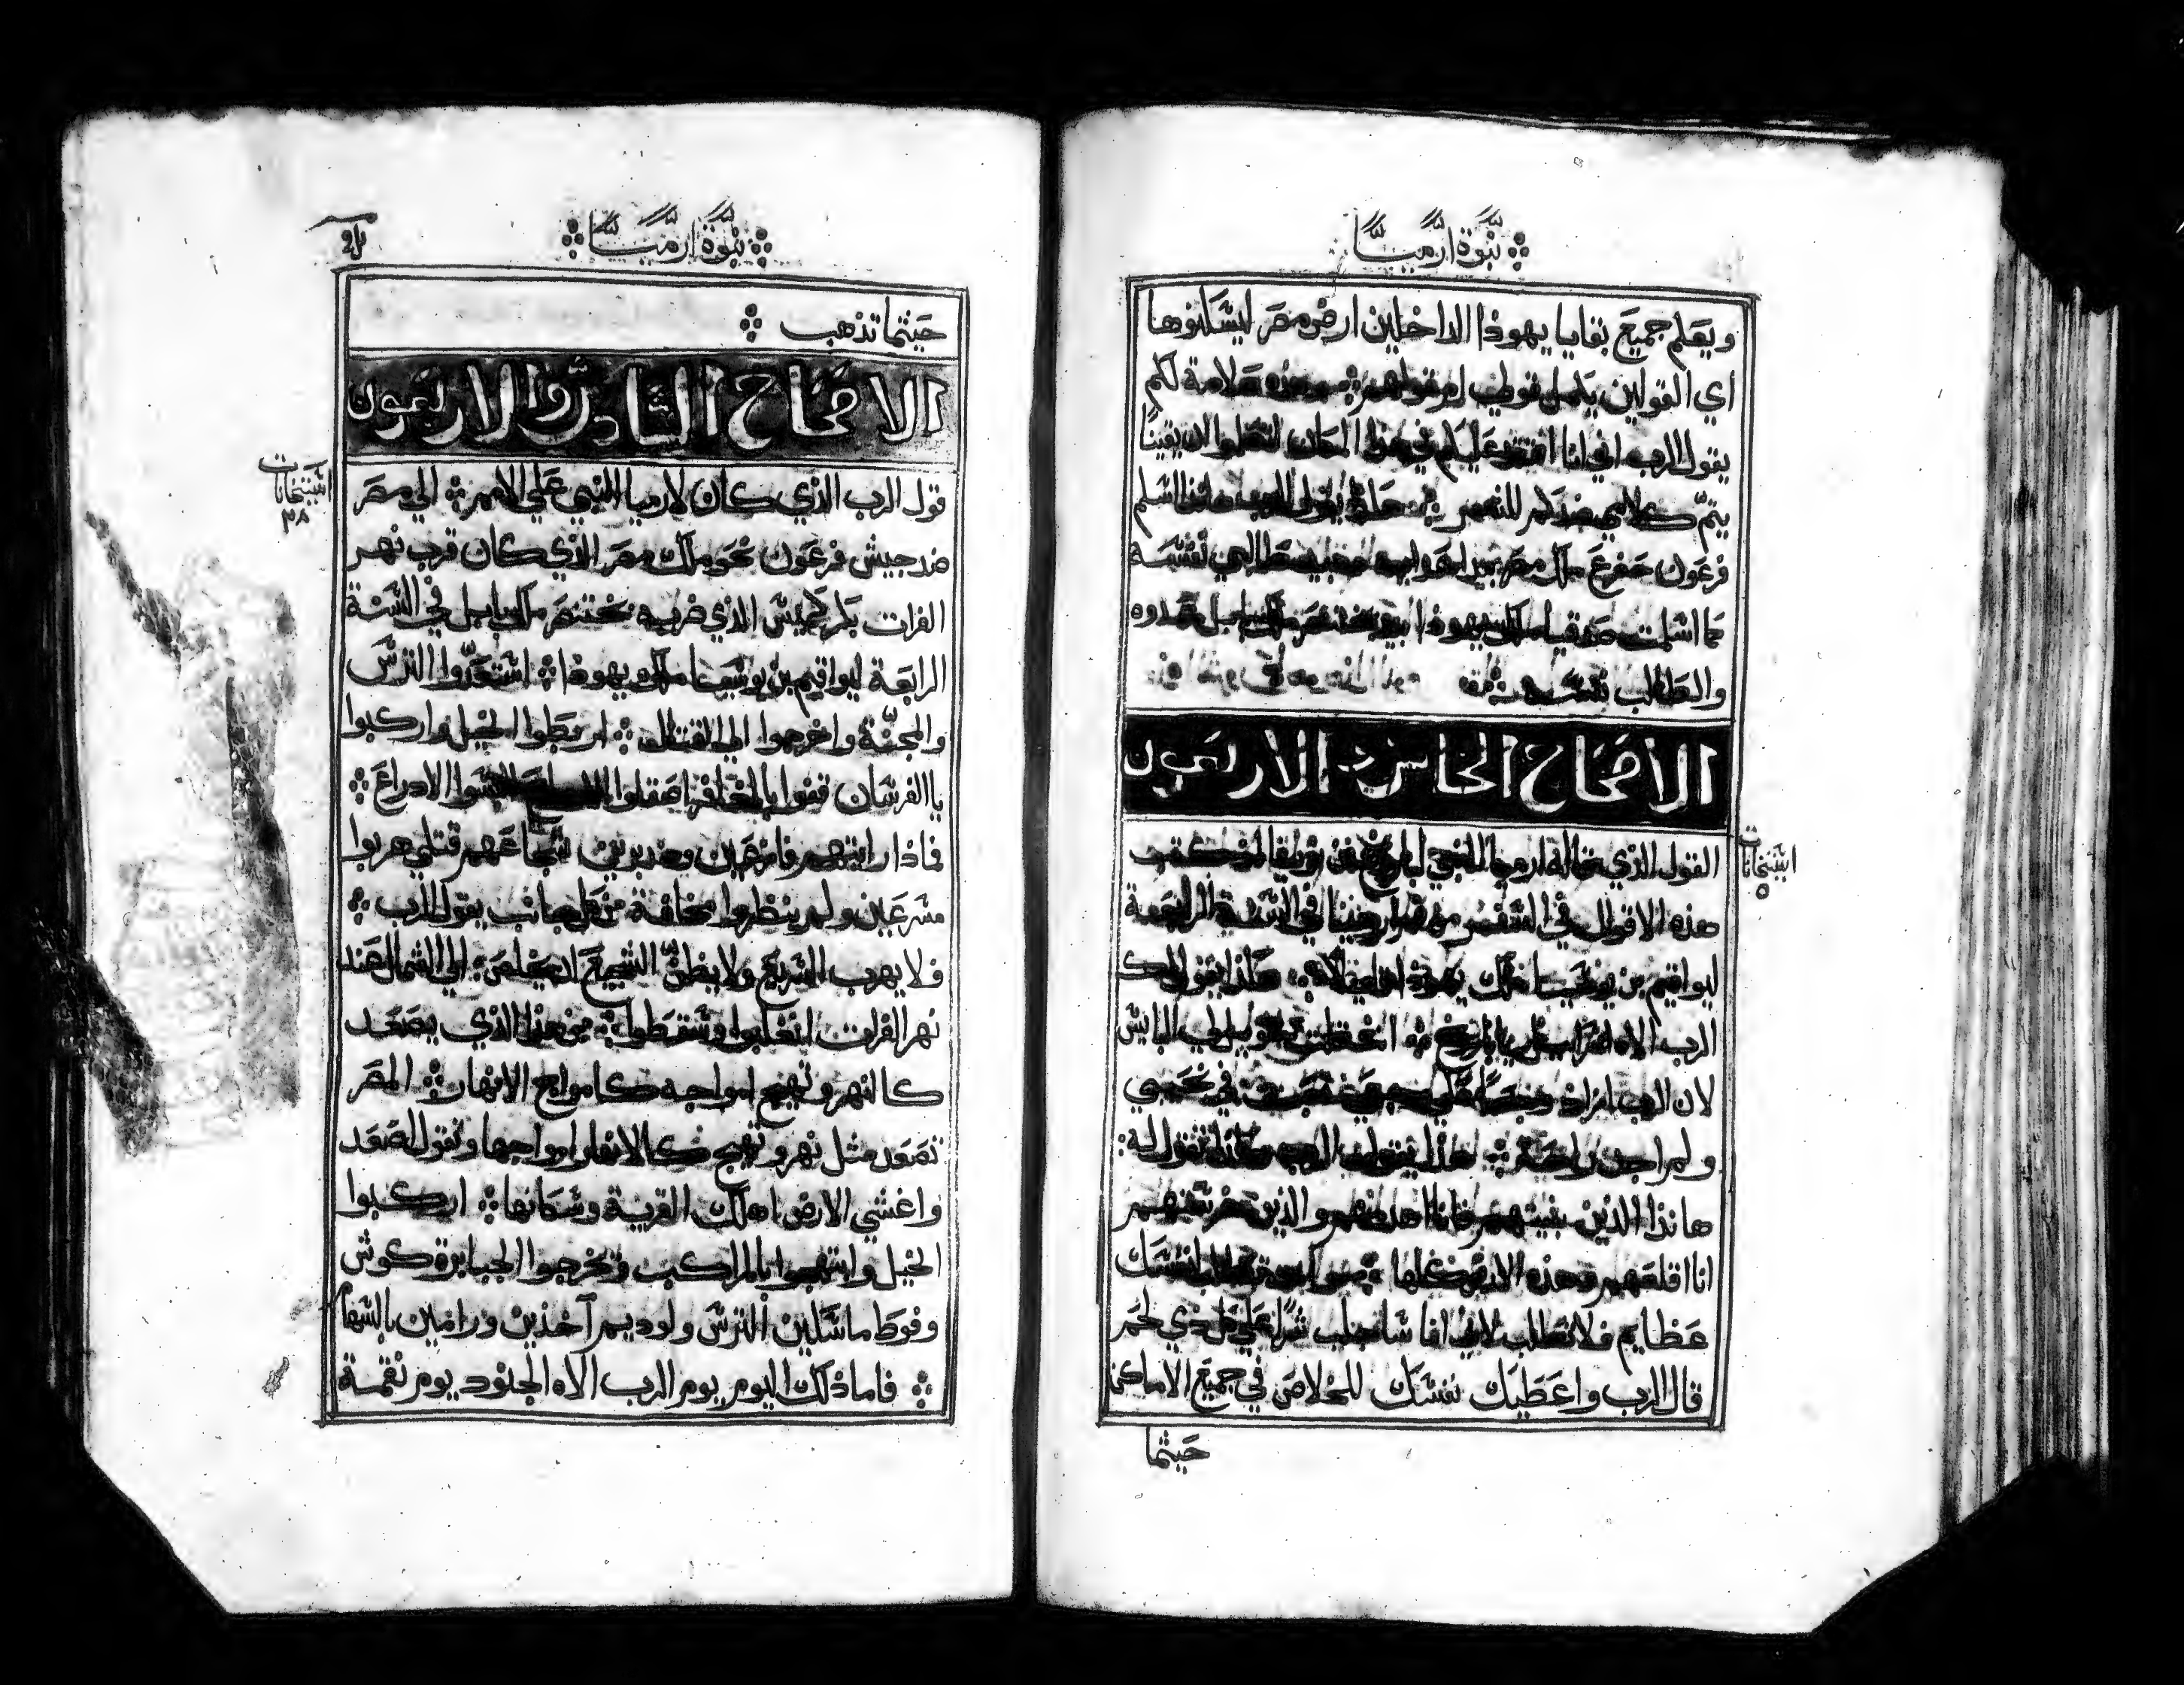 نبوة ارميا
ويعلم جميع بقايا يهوذا الداخلين ارض مصر ليسكنوها
اي القولين يكمل قولي ام قولهم وهذه علامة لكم
يقول الرب اني انا افتقد عليكم في هذا المكان لتعلموا ان يقينًا
يتم كلامي ضدكم للشر هكذا يقول الرب هانذا اسلم
فرعون حفرع ملك مصر بيد اعدايه طالبي نفسه
كما اسلمت صدقيا ملك يهوذا بيد بختنصر ملك بابل عدوه
والطالب نفسه
الاصحاح الخامس والاربعون
استيخانات
٥
القول الذي قاله ارميا النبي لباروخ بن نيريا لما كتب
هذه الاقوال في السفر من فم ارميا في السنة الرابعة
ليواقيم بن يوشيا ملك يهوذا هكذا يقول لك
الرب الاه اسرايل يا باروخ انك قلت ويل لي البايس
لان الرب ازاد وجعًا علي وجعي تعبت في نحيبي
ولم اجد راحة هكذا يقول الرب هكذا تقول له
هانذا الذين بنيتهم فانا اهدمهم والذين غرستهم
انا اقلعهم وهذه الارض كلها وانت تطلب لنفسك
عظايم فلا تطلب لاني انا ساجلب شرًا علي كل ذي لحم
قال الرب واعطيك نفسك للخلاص في جميع الاماكن
حيثما
نبوة ارميا
حيثما تذهب
الاصحاح السادس والاربعون
استيخانات
٣٨
قول الرب الذي كان لارميا النبي علي الامم الي مصر
ضد جيش فرعون نحو ملك مصر الذي كان قرب نهر
الفرات بكركميش الذي ضربه بختنصر ملك بابل في السنة
الرابعة ليواقيم بن يوشيا ملك يهوذا استعدّوا الترس
والمجنّة واخرجوا الي القتال اربطوا الخيل واركبوا
يا الفرسان قفوا بالخوذ اصقلوا البسوا الادراع
فماذا رايتهم فازعين ومدبرين شجاعهم قتلي هربوا
مسرعين ولم ينظروا مخافة من كل جانب يقول الرب
فلا يهرب السريع ولا يظنّ الشجيع ان يخلص الي الشمال عند
نهر الفرات انغلبوا وسقطوا من هذا الذي يصعد
كالنهر وتهيج امواجه كامواج الانهار المصر
تصعد مثل نهر وتهيج كالانهار امواجها وتقول اصعد
واغشي الارض اهلك القرية وسكانها اركبوا
الخيل وابتهجوا بالمراكب وتخرجوا الجبابرة كوش
وفوط ماسكين الترس ولوديم آخذين ورامين بالسهام
فاما ذلك اليوم يوم الرب الاه الجنود يوم نقمة